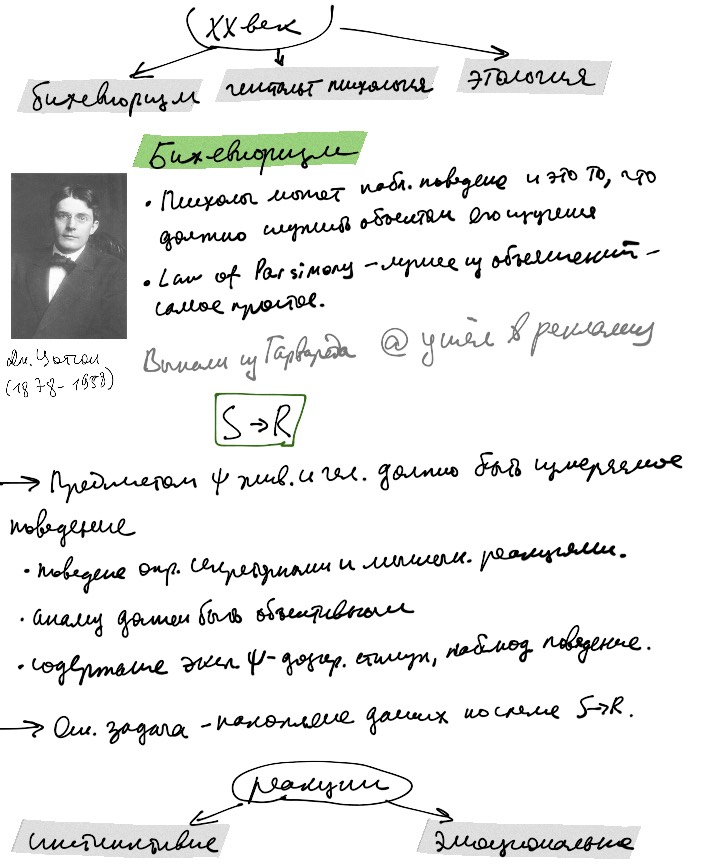 XX век
бихевиоризм гештальт психология этология
Бихевиоризм
• Психолог может набл. поведение и это то, что
должно служить объектом его изучения
• Law of Parsimony – лучшее из объяснений –
самое простое.
Дж. Уотсон
(1878-1958)
Выгнали из Гарварда @ ушёл в рекламу
S → R
→ Предметом ψ жив. и чел. должно быть измеряемое
поведение
• поведение опр. секреторными и мышечн. реакциями.
• анализ должен быть объективным
• содержание эксп ψ – дозир. стимул, наблюд поведение.
→ Осн. задача – накопление данных по схеме S→R.
реакции
инстинктивные эмоциональные